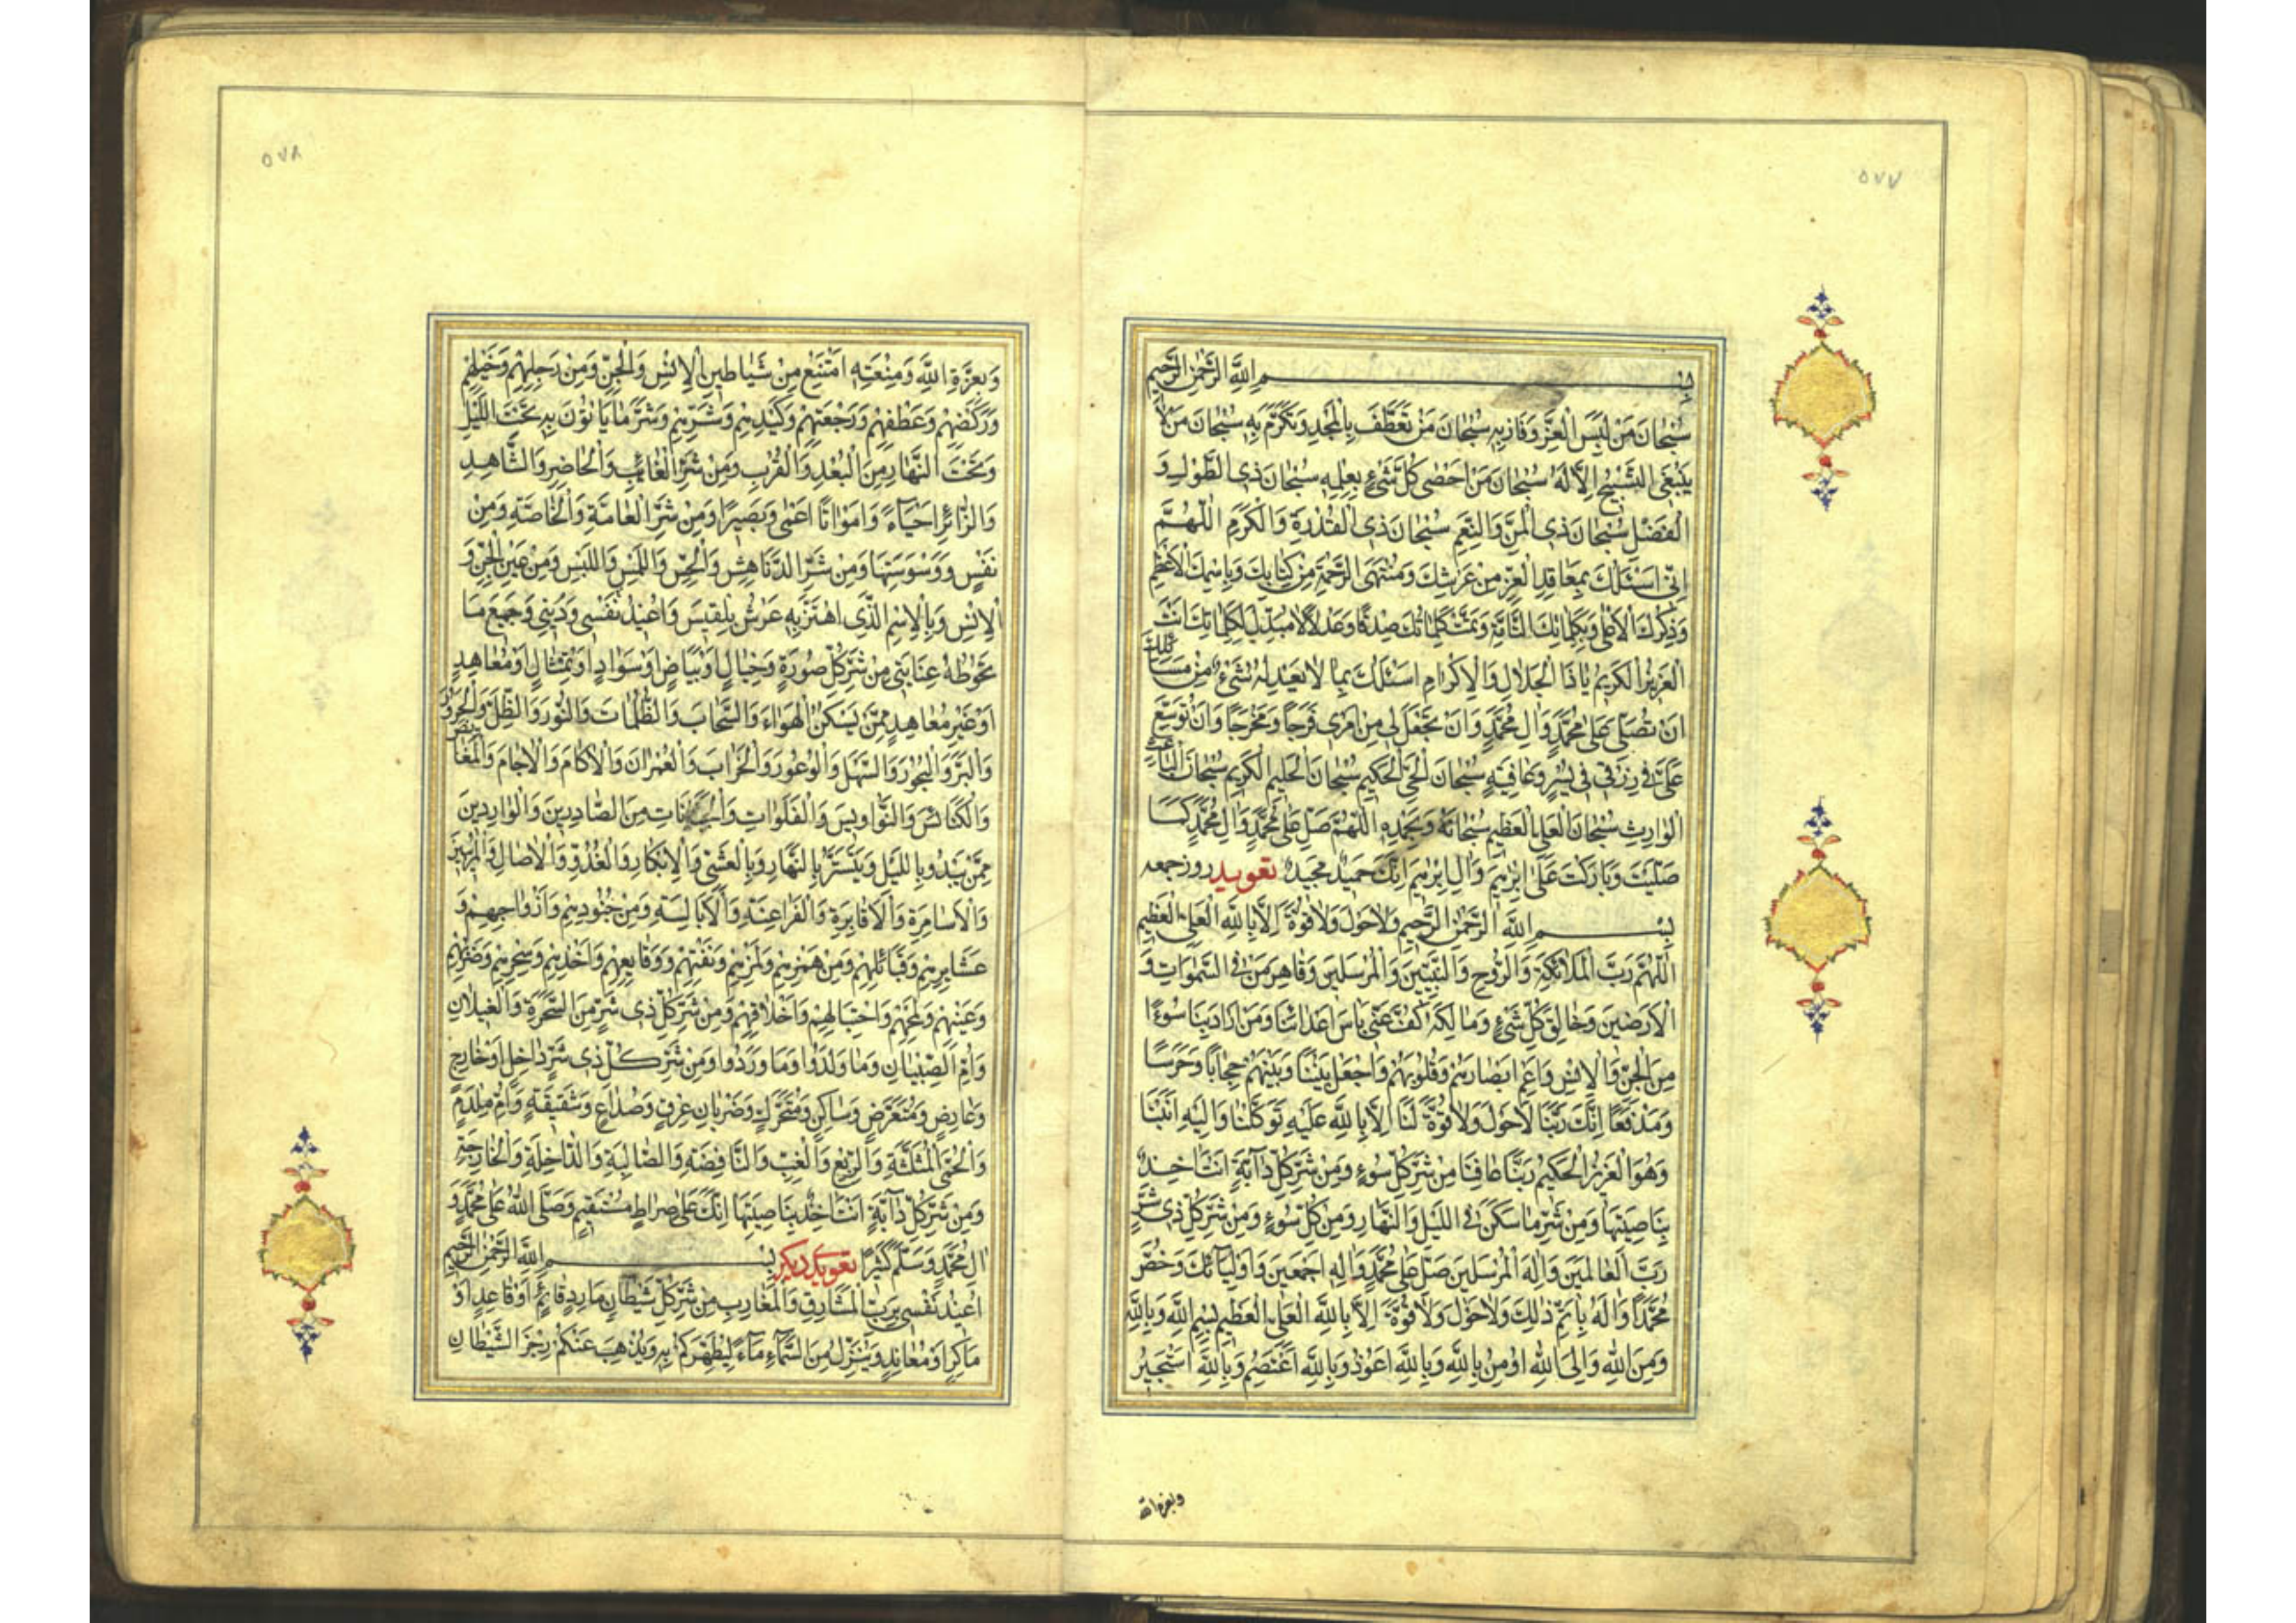 ٥٧٧
بسم الله الرحمن الرحيم
سُبْحانَ مَنْ لَبِسَ الْعِزَّ وَفازَ بِهِ سُبْحانَ مَنْ تَعَطَّفَ بِالْمَجْدِ وَتَكَرَّمَ بِهِ سُبْحانَ مَنْ لا
يَنْبَغِى التَّسْبِيحُ اِلّا لَهُ سُبْحانَ مَنْ اَحْصى كُلَّ شَىْءٍ بِعِلْمِهِ سُبْحانَ ذِى الطَّوْلِ وَ
الْفَضْلِ سُبْحانَ ذِى الْمَنِّ وَالنِّعَمِ سُبْحانَ ذِى الْقُدْرَةِ وَالْكَرَمِ اَللّهُمَّ
اِنّى اَسْئَلُكَ بِمَعاقِدِ الْعِزِّ مِنْ عَرْشِكَ وَمُنْتَهَى الرَّحْمَةِ مِنْ كِتابِكَ وَبِاسْمِكَ الْاَعْظَمِ
وَذِكْرِكَ الْاَعْلى وَبِكَلِماتِكَ التّامَّةِ وَتَمَّتْ كَلِماتُكَ صِدْقًا وَعَدْلًا لا مُبَدِّلَ لِكَلِماتِكَ اَنْتَ
الْعَزِيزُ الْكَرِيمُ يا ذَا الْجَلالِ وَالْاِكْرامِ اَسْئَلُكَ بِما لا يَعْدِلُهُ شَىْءٌ مِنْ مَسائِلِكَ
اَنْ تُصَلِّىَ عَلى مُحَمَّدٍ وَالِ مُحَمَّدٍ وَاَنْ تَجْعَلَ لِى مِنْ اَمْرِى فَرَجًا وَمَخْرَجًا وَاَنْ تُوَسِّعَ
عَلَىَّ فِى رِزْقِى فِى يُسْرٍ وَعافِيَةٍ سُبْحانَ الْحَىِّ الْحَكِيمِ سُبْحانَ الْحَلِيمِ الْكَرِيمِ سُبْحانَ الْباعِثِ
الْوارِثِ سُبْحانَ الْعَلِىِّ الْعَظِيمِ سُبْحانَهُ وَبِحَمْدِهِ اَللّهُمَّ صَلِّ عَلى مُحَمَّدٍ وَالِ مُحَمَّدٍ كَما
صَلَّيْتَ وَبارَكْتَ عَلى اِبْرهِيمَ وَالِ اِبْرهِيمَ اِنَّكَ حَمِيدٌ مَجِيدٌ تعويذ روز جمعه
بسم الله الرحمن الرحيم وَلا حَوْلَ وَلا قُوَّةَ اِلّا بِاللهِ الْعَلِىِّ الْعَظِيمِ
اَللّهُمَّ رَبَّ الْمَلائِكَةِ وَالرُّوحِ وَالنَّبِيّينَ وَالْمُرْسَلِينَ وَقاهِرَ مَنْ فِى السَّموَاتِ وَ
الْاَرَضِينَ وَخالِقَ كُلِّ شَىْءٍ وَمالِكَهُ اكْفُفْ عَنِّى بَأْسَ اَعْدائِنا وَمَنْ اَرادَ بِنا سُوءًا
مِنَ الْجِنِّ وَالْاِنْسِ وَاَعْمِ اَبْصارَهُمْ وَقُلُوبَهُمْ وَاجْعَلْ بَيْنَنا وَبَيْنَهُمْ حِجابًا وَحَرَسًا
وَمَدْفَعًا اِنَّكَ رَبُّنا لا حَوْلَ وَلا قُوَّةَ لَنا اِلّا بِاللهِ عَلَيْهِ تَوَكَّلْنا وَاِلَيْهِ اَنَبْنا
وَهُوَ الْعَزِيزُ الْحَكِيمُ رَبَّنا عافِنا مِنْ شَرِّ كُلِّ سُوءٍ وَمِنْ شَرِّ كُلِّ دابَّةٍ اَنْتَ اخِذٌ
بِناصِيَتِها وَمِنْ شَرِّ ما سَكَنَ فِى اللَّيْلِ وَالنَّهارِ وَمِنْ كُلِّ سُوءٍ وَمِنْ شَرِّ كُلِّ ذِى شَرٍّ
رَبَّ الْعالَمِينَ وَاِلهَ الْمُرْسَلِينَ صَلِّ عَلى مُحَمَّدٍ وَالِهِ اَجْمَعِينَ وَاَوْلِيائِكَ وَخُصَّ
مُحَمَّدًا وَالَهُ بِاَتَمِّ ذلِكَ وَلا حَوْلَ وَلا قُوَّةَ اِلّا بِاللهِ الْعَلِىِّ الْعَظِيمِ بِسْمِ اللهِ وَبِاللهِ
وَمِنَ اللهِ وَاِلَى اللهِ اُومِنُ بِاللهِ وَبِاللهِ اَعُوذُ وَبِاللهِ اَعْتَصِمُ وَبِاللهِ اَسْتَجِيرُ
وبعزة الله
٥٧٨
وَبِعِزَّةِ اللهِ وَمِنْعَتِهِ اَمْتَنِعُ مِنْ شَياطِينِ الْاِنْسِ وَالْجِنِّ وَمِنْ رَجِلِهِمْ وَخَيْلِهِمْ
وَرَكْضِهِمْ وَعَطْفِهِمْ وَرَجْعَتِهِمْ وَكَيْدِهِمْ وَشَرِّهِمْ وَشَرِّ ما يَاْتُونَ بِهِ تَحْتَ اللَّيْلِ
وَتَحْتَ النَّهارِ مِنَ الْبُعْدِ وَالْقُرْبِ وَمِنْ شَرِّ الْغائِبِ وَالْحاضِرِ وَالشّاهِدِ
وَالزّائِرِ اَحْياءً وَاَمْواتًا اَعْمى وَبَصِيرًا وَمِنْ شَرِّ الْعامَّةِ وَالْخاصَّةِ وَمِنْ
نَفْسٍ وَوَسْوَسَتِها وَمِنْ شَرِّ الدَّناهِشِ وَالْحِسِّ وَاللَّمْسِ وَاللَّبْسِ وَمِنْ عَيْنِ الْجِنِّ وَ
الْاِنْسِ وَبِالْاِسْمِ الَّذِى اهْتَزَّ بِهِ عَرْشُ بِلْقِيسَ وَاُعِيذُ نَفْسِى وَدِينِى وَجَمِيعَ ما
تَحُوطُهُ عِنايَتِى مِنْ شَرِّ كُلِّ صُورَةٍ وَخَيالٍ اَوْ بَياضٍ اَوْ سَوادٍ اَوْ تِمْثالٍ اَوْ مُعاهِدٍ
اَوْ غَيْرِ مُعاهِدٍ مِمَّنْ يَسْكُنُ الْهَواءَ وَالسَّحابَ وَالظُّلُماتِ وَالنُّورَ وَالظِّلَّ وَالْحَرُورَ
وَالْبَرَّ وَالْبُحُورَ وَالسَّهْلَ وَالْوُعُورَ وَالْخَرابَ وَالْعُمْرانَ وَالْاكامَ وَالْاجامَ وَالْمَغائِضَ
وَالْكَنائِسَ وَالنَّواوِيسَ وَالْفَلَواتِ وَالْجَبّاناتِ مِنَ الصّادِرِينَ وَالْوارِدِينَ
مِمَّنْ يَبْدُو بِاللَّيْلِ وَيَسْتَتِرُ بِالنَّهارِ وَبِالْعَشِىِّ وَالْاِبْكارِ وَالْغُدُوِّ وَالْاصالِ وَالْمُرِيبِينَ
وَالْاَسامِرَةِ وَالْاَفاتِرَةِ وَالْفَراعِنَةِ وَالْاَبالِسَةِ وَمِنْ جُنُودِهِمْ وَاَزْواجِهِمْ وَ
عَشايِرِهِمْ وَقَبائِلِهِمْ وَمِنْ هَمْزِهِمْ وَلَمْزِهِمْ وَنَفْثِهِمْ وَوِقاعِهِمْ وَاَخْذِهِمْ وَسِحْرِهِمْ وَضَرْبِهِمْ
وَعَيْنِهِمْ وَلَمْحِهِمْ وَاحْتِيالِهِمْ وَاَخْلاقِهِمْ وَمِنْ شَرِّ كُلِّ ذِى شَرٍّ مِنَ السَّحَرَةِ وَالْغِيلانِ
وَاُمِّ الصِّبْيانِ وَما وَلَدُوا وَما وَرَدُوا وَمِنْ شَرِّ كُلِّ ذِى شَرٍّ داخِلٍ اَوْ خارِجٍ
وَعارِضٍ وَمُتَعَرِّضٍ وَساكِنٍ وَمُتَحَرِّكٍ وَضَرَبانِ عِرْقٍ وَصُداعٍ وَشَقِيقَةٍ وَاُمِّ مِلْدَمٍ
وَالْحُمَّى الْمُثَلَّثَةِ وَالرِّبْعِ وَالْغِبِّ وَالنّافِضَةِ وَالصّالِبَةِ وَالدّاخِلَةِ وَالْخارِجَةِ
وَمِنْ شَرِّ كُلِّ دابَّةٍ اَنْتَ اخِذٌ بِناصِيَتِها اِنَّكَ عَلى صِراطٍ مُسْتَقِيمٍ وَصَلَّى اللهُ عَلى مُحَمَّدٍ وَ
الِ مُحَمَّدٍ وَسَلَّمَ كَثِيرًا تعويذ ديكر بسم الله الرحمن الرحيم
اُعِيذُ نَفْسِى بِرَبِّ الْمَشارِقِ وَالْمَغارِبِ مِنْ شَرِّ كُلِّ شَيْطانٍ مارِدٍ قائِمٍ اَوْ قاعِدٍ اَوْ
ماكِرٍ اَوْ مُعانِدٍ وَيُنَزِّلُ مِنَ السَّماءِ ماءً لِيُطَهِّرَكُمْ بِهِ وَيُذْهِبَ عَنْكُمْ رِجْزَ الشَّيْطانِ